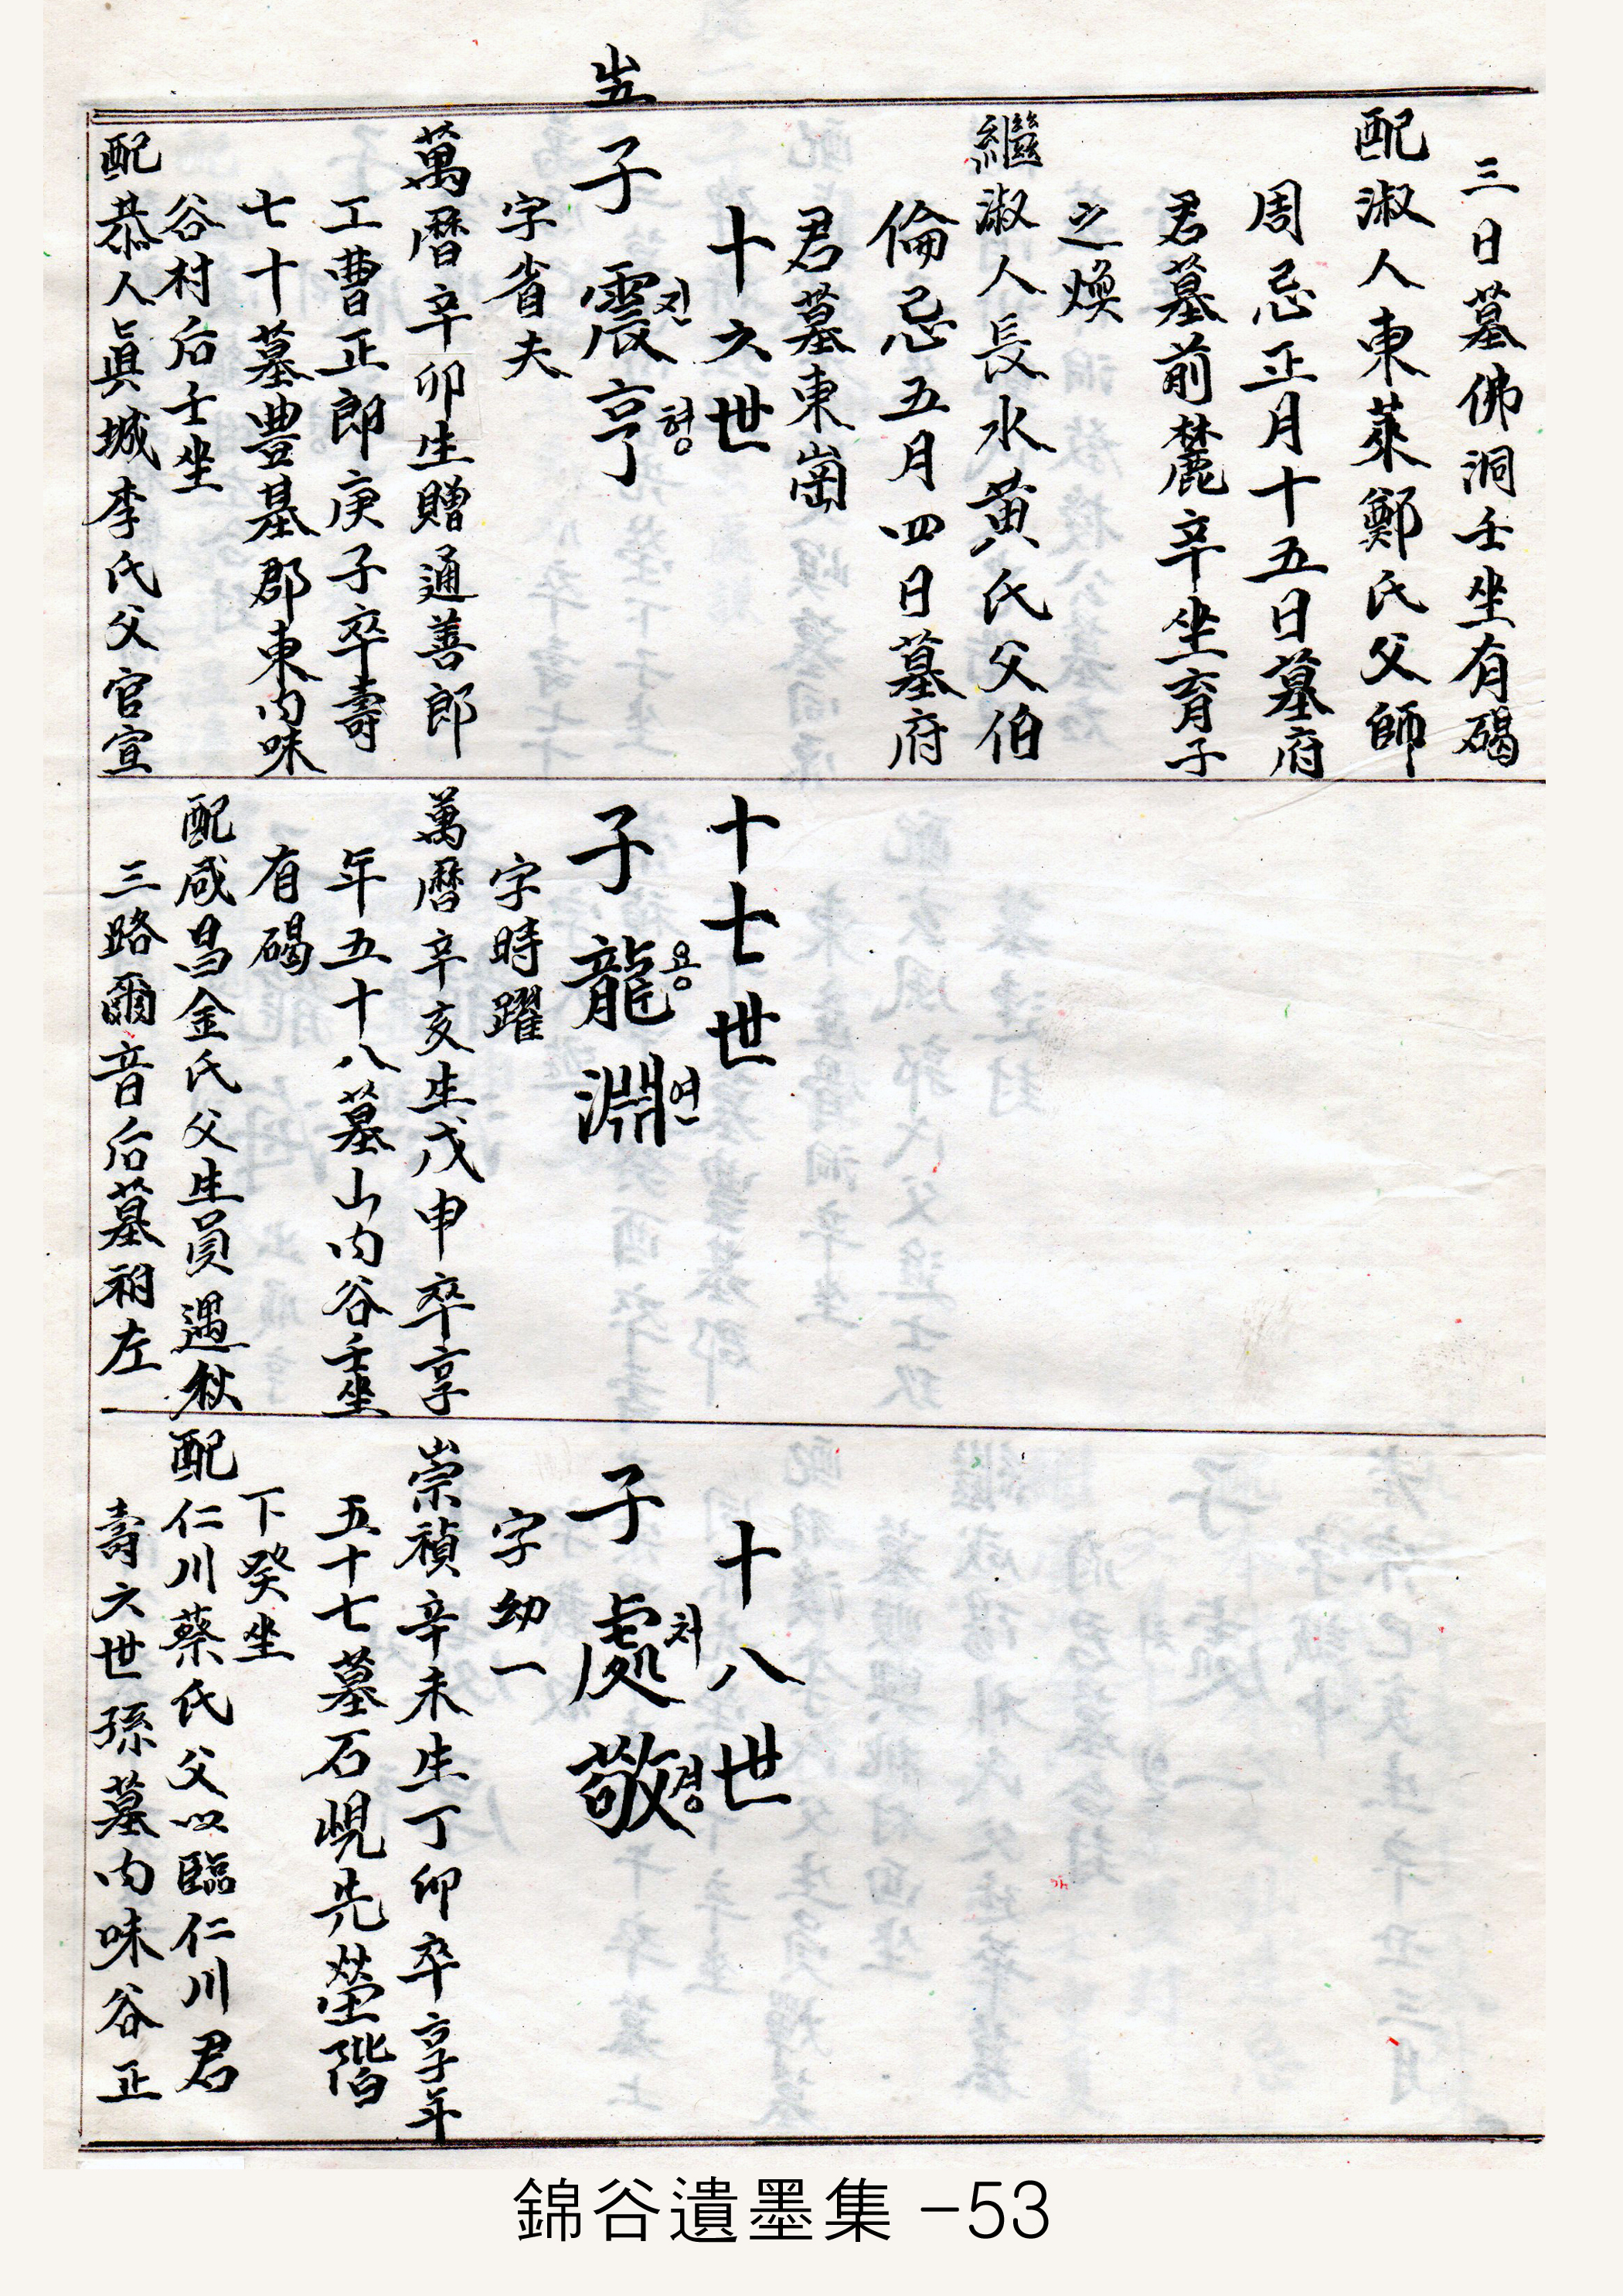 三日墓佛洞壬坐有碣
配淑人東萊鄭氏父師
周忌正月十五日墓府
君墓前麓辛坐育子
之煥
繼淑人長水黃氏父伯
倫忌五月四日墓府
君墓東崗
十六世
子 震亨
진형
字省夫
萬曆辛卯生贈通善郎
工曹正郎庚子卒壽
七十墓豊基郡東內味
谷村后壬坐
配恭人眞城李氏父官宣
十七世
子 龍淵
용연
字時躍
萬曆辛亥生戊申卒享
年五十八墓山內谷壬坐
有碣
配咸昌金氏父生員遇秋
三路爾音后墓祔左
十八世
子 處敬
처경
字幼一
崇禎辛未生丁卯卒享年
五十七墓石峴先塋階
下癸坐
配仁川蔡氏父以臨仁川君
壽六世孫墓內味谷正
錦谷遺墨集 -53